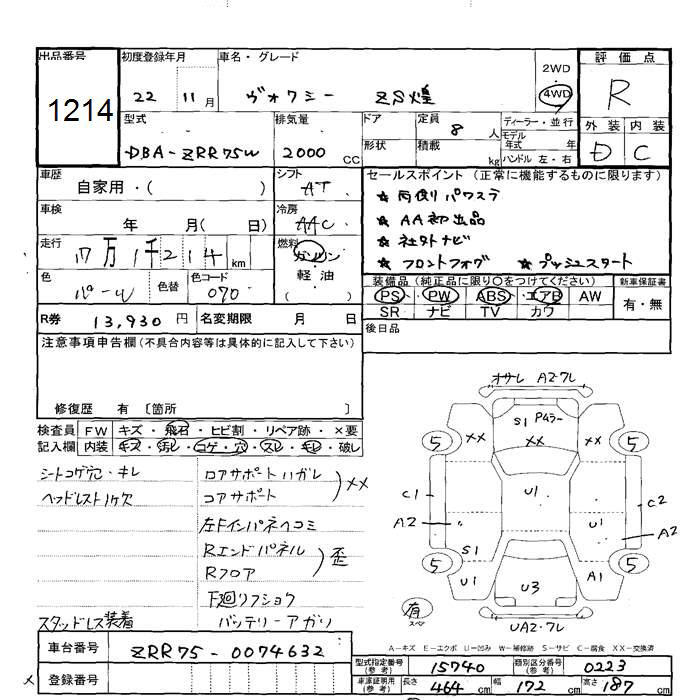 出品番号 初度登録年月 車名・グレード 2WD 評価点
1214 22 11月 ヴォクシー ZS煌 4WD R
型式 排気量 ドア 定員 8 人 ディーラー・並行 外装 内装
DBA-ZRR75W 2000 CC 形状 積載 kg モデル年式 年 ハンドル 左・右 D C
車歴 自家用・( ) シフト AT セールスポイント (正常に機能するものに限ります)
★両側パワスラ
車検 年 月( 日) 冷房 AAC ★AA初出品
★社外ナビ
走行 17万1千214 km 燃料 ガソリン・軽油 ( ) ★フロントフォグ ★プッシュスタート
色 パール 色替 色コード 070 装備品(純正品に限り○をつけてください) 新車保証書
PS PW ABS エアB AW 有・無
SR ナビ TV カワ
R券 13,930 円 名変期限 月 日 後日品
注意事項申告欄(不具合内容等は具体的に記入して下さい)
修復歴 有 〔箇所 〕
検査員 FW キズ・飛石・ヒビ割・リペア跡・×要
記入欄 内装 キズ・汚レ・コゲ・穴・スレ・キレ・破レ
シートコゲ穴・キレ
ヘッドレスト1ケ欠
スタッドレス装着
ロアサポートハガレ
コアサポート XX
左Fインパネヘコミ
Rエンドパネル
Rフロア 歪
下廻リフショク
バッテリーアガリ
オサレ A2・フレ
S1 P4ラー
XX XX XX
5 5
C1 U1 C2
A2 U1 A2
S1
5 5
U1 U3 A1
有
UA2・フレ
A-キズ E-エクボ U-凹み W-補修跡 S-サビ C-腐食 XX-交換済
車台番号 ZRR75-0074632
登録番号
型式指定番号(参考) 15740 類別区分番号(参考) 0223
車庫証明用(参考) 長さ 464 cm 幅 172 cm 高さ 187 cm